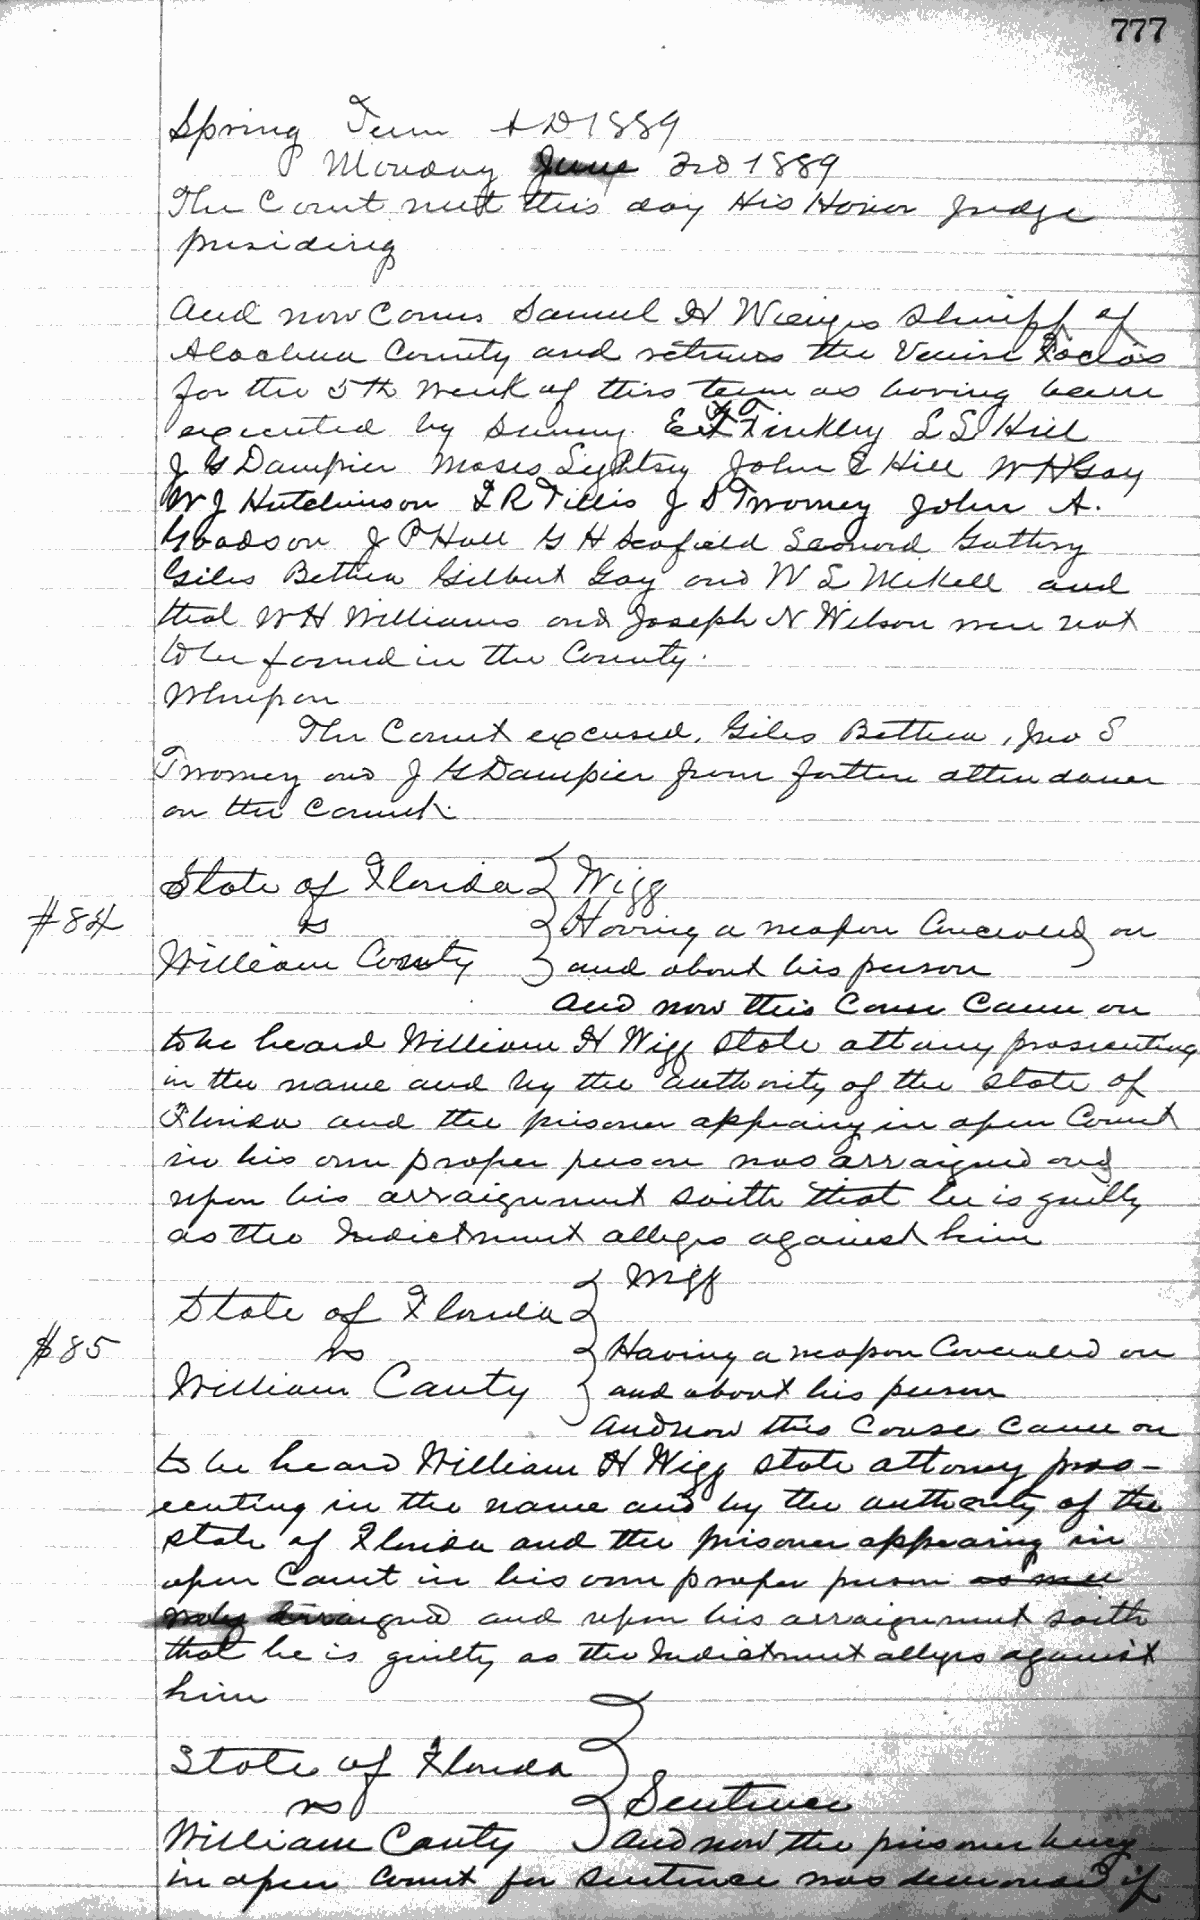 777
Spring Term AD 1889
Monday June 3rd 1889
The Court met this day His Honor Judge
presiding
And now Comes Samuel H Wienges Sheriff of
Alachua County and returns the Venire Facias
for the 5th week of this term as having been
executed by summ. E Tinkley L L Hill
J G Dampier Moses Lightsey John E Hill W H Gay
W J Hutchinson F R Tillis J S Twomey John A.
Goodson J P Hall G H Scofield Leonard Guthry
Giles Bethea Gilbert Gay and W L Mikell and
that W H Williams and Joseph N Wilson were not
to be found in the County.
Wherupon
The Court excused, Giles Bethea, Jno S
Twomey and J G Dampier from further attendance
on the Court.
State of Florida Wigg
#84
vs Having a weapon Concealed on
William Canty and about his person
And now this Cause Came on
to be heard William H Wigg State attorny prosecuting
in the name and by the authority of the State of
Florida and the prisoner appearing in open Court
in his own proper person was arraigned and
upon his arraignment saith that he is guilty
as the Indictment alleges against him
Wigg
State of Florida
#85
vs Having a weapon Concealed on
William Canty and about his person
And now this Cause Came on
to be heard William H Wigg State attorney pros-
ecuting in the name and by the authority of the
State of Florida and the prisoner appearing in
open Court in his own proper person as well
was arraigned and upon his arraignment saith
that he is guilty as the Indictment alleges against
him
State of Florida
vs Sentence
William Canty And now the prisoner being
in open Court for Sentence was demanded if